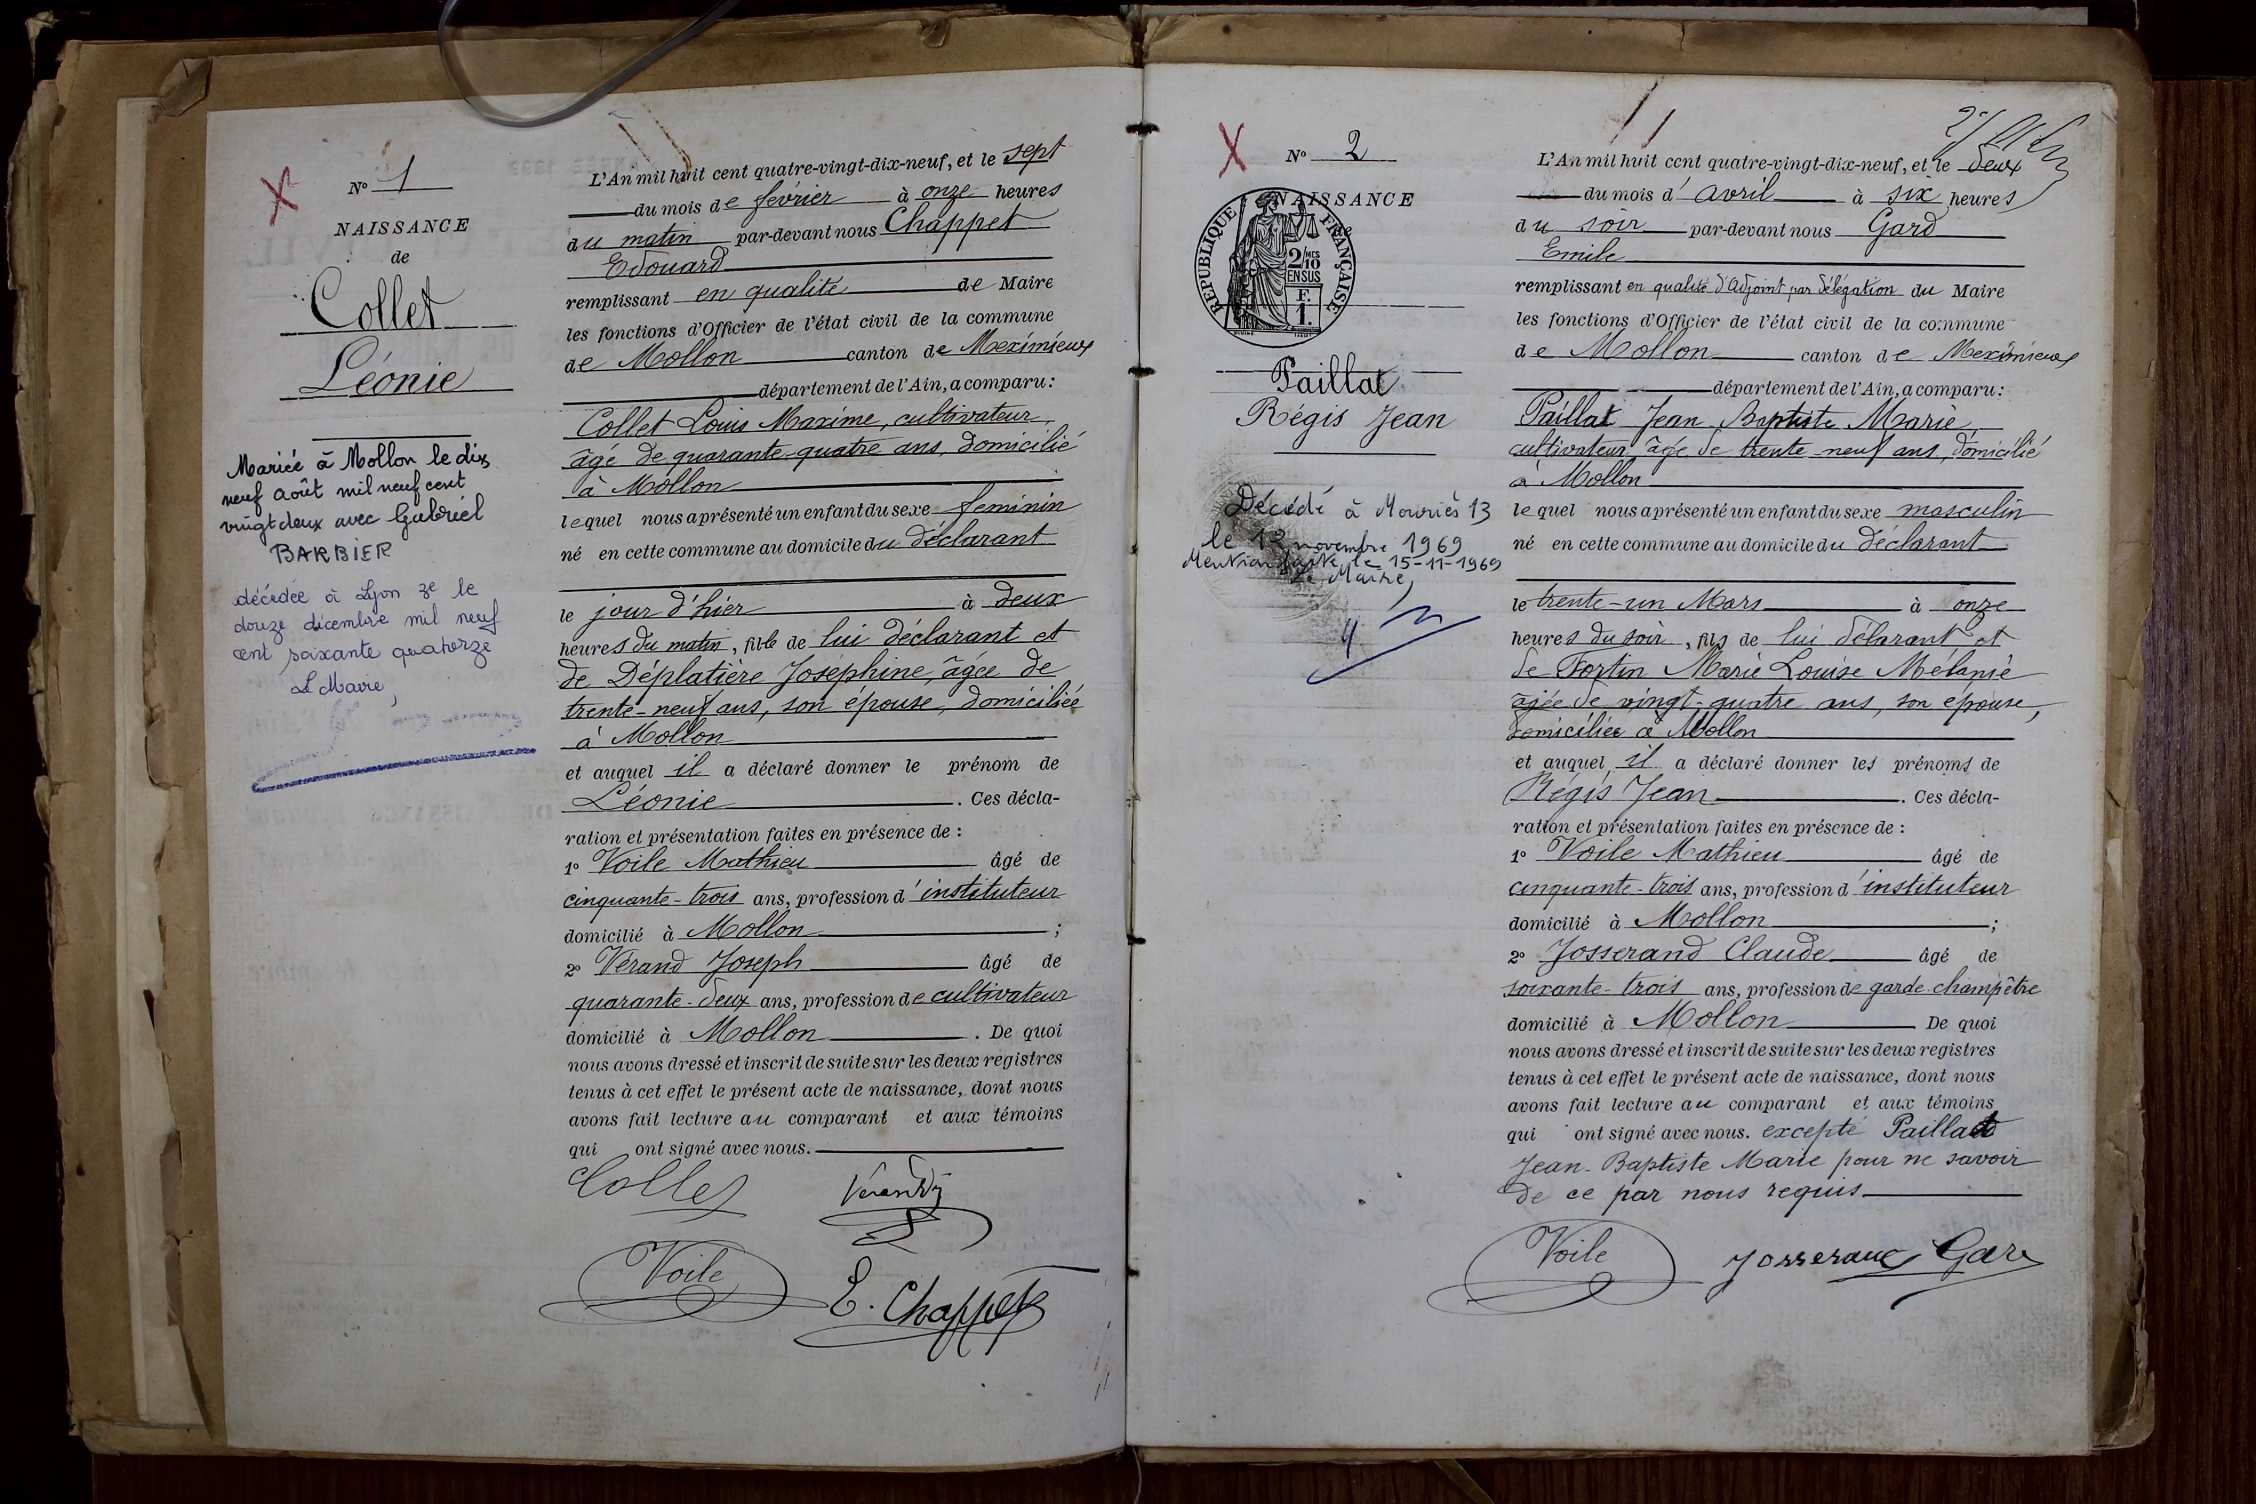 N° 1
NAISSANCE
de
Collet
Léonie
Mariée à Mollon le dix
neuf août mil neuf cent
vingt deux avec Gabriel
BARBIER
décédée à Lyon 2e le
douze décembre mil neuf
cent soixante quatorze
Le Maire,
L'An mil huit cent quatre-vingt-dix-neuf, et le sept
du mois de février à onze heures
du matin par-devant nous Chappet
Edouard
remplissant en qualité de Maire
les fonctions d'Officier de l'état civil de la commune
de Mollon canton de Meximieux
département de l'Ain, a comparu:
Collet Louis Maxime, cultivateur,
âgé de quarante-quatre ans, domicilié
à Mollon
lequel nous a présenté un enfant du sexe feminin
né en cette commune au domicile du déclarant
le jour d'hier à deux
heures du matin, fille de lui déclarant et
de Déplatière Joséphine, âgée de
trente-neuf ans, son épouse, domiciliée
à Mollon
et auquel il a déclaré donner le prénom de
Léonie. Ces décla-
ration et présentation faites en présence de :
1° Voile Mathieu âgé de
cinquante-trois ans, profession d'instituteur
domicilié à Mollon ;
2° Vérand Joseph âgé de
quarante-deux ans, profession de cultivateur
domicilié à Mollon. De quoi
nous avons dressé et inscrit de suite sur les deux registres
tenus à cet effet le présent acte de naissance, dont nous
avons fait lecture au comparant et aux témoins
qui ont signé avec nous.
Collet Vérand
Voile E. Chappet
N° 2
NAISSANCE
RÉPUBLIQUE FRANÇAISE
2/10 MES
EN SUS
F.
1.
Paillat
Régis Jean
Décédé à Mouriès 13
le 13 novembre 1969
Mention faite le 15-11-1969
Le Maire,
L'An mil huit cent quatre-vingt-dix-neuf, et le deux
du mois d'avril à six heures
du soir par-devant nous Gard
Emile
remplissant en qualité d'Adjoint par délégation du Maire
les fonctions d'Officier de l'état civil de la commune
de Mollon canton de Meximieux
département de l'Ain, a comparu:
Paillat Jean Baptiste Marie,
cultivateur âgé de trente-neuf ans, domicilié
à Mollon
lequel nous a présenté un enfant du sexe masculin
né en cette commune au domicile du déclarant
le trente-un Mars à onze
heures du soir, fils de lui déclarant et
de Fortin Marie Louise Mélanie
âgée de vingt-quatre ans, son épouse,
domiciliée à Mollon
et auquel il a déclaré donner les prénoms de
Régis Jean. Ces décla-
ration et présentation faites en présence de :
1° Voile Mathieu âgé de
cinquante-trois ans, profession d'instituteur
domicilié à Mollon ;
2° Josserand Claude âgé de
soixante-trois ans, profession de garde-champêtre
domicilié à Mollon De quoi
nous avons dressé et inscrit de suite sur les deux registres
tenus à cet effet le présent acte de naissance, dont nous
avons fait lecture au comparant et aux témoins
qui ont signé avec nous. excepté Paillat
Jean-Baptiste Marie pour ne savoir
de ce par nous requis
Voile Josserand Gard